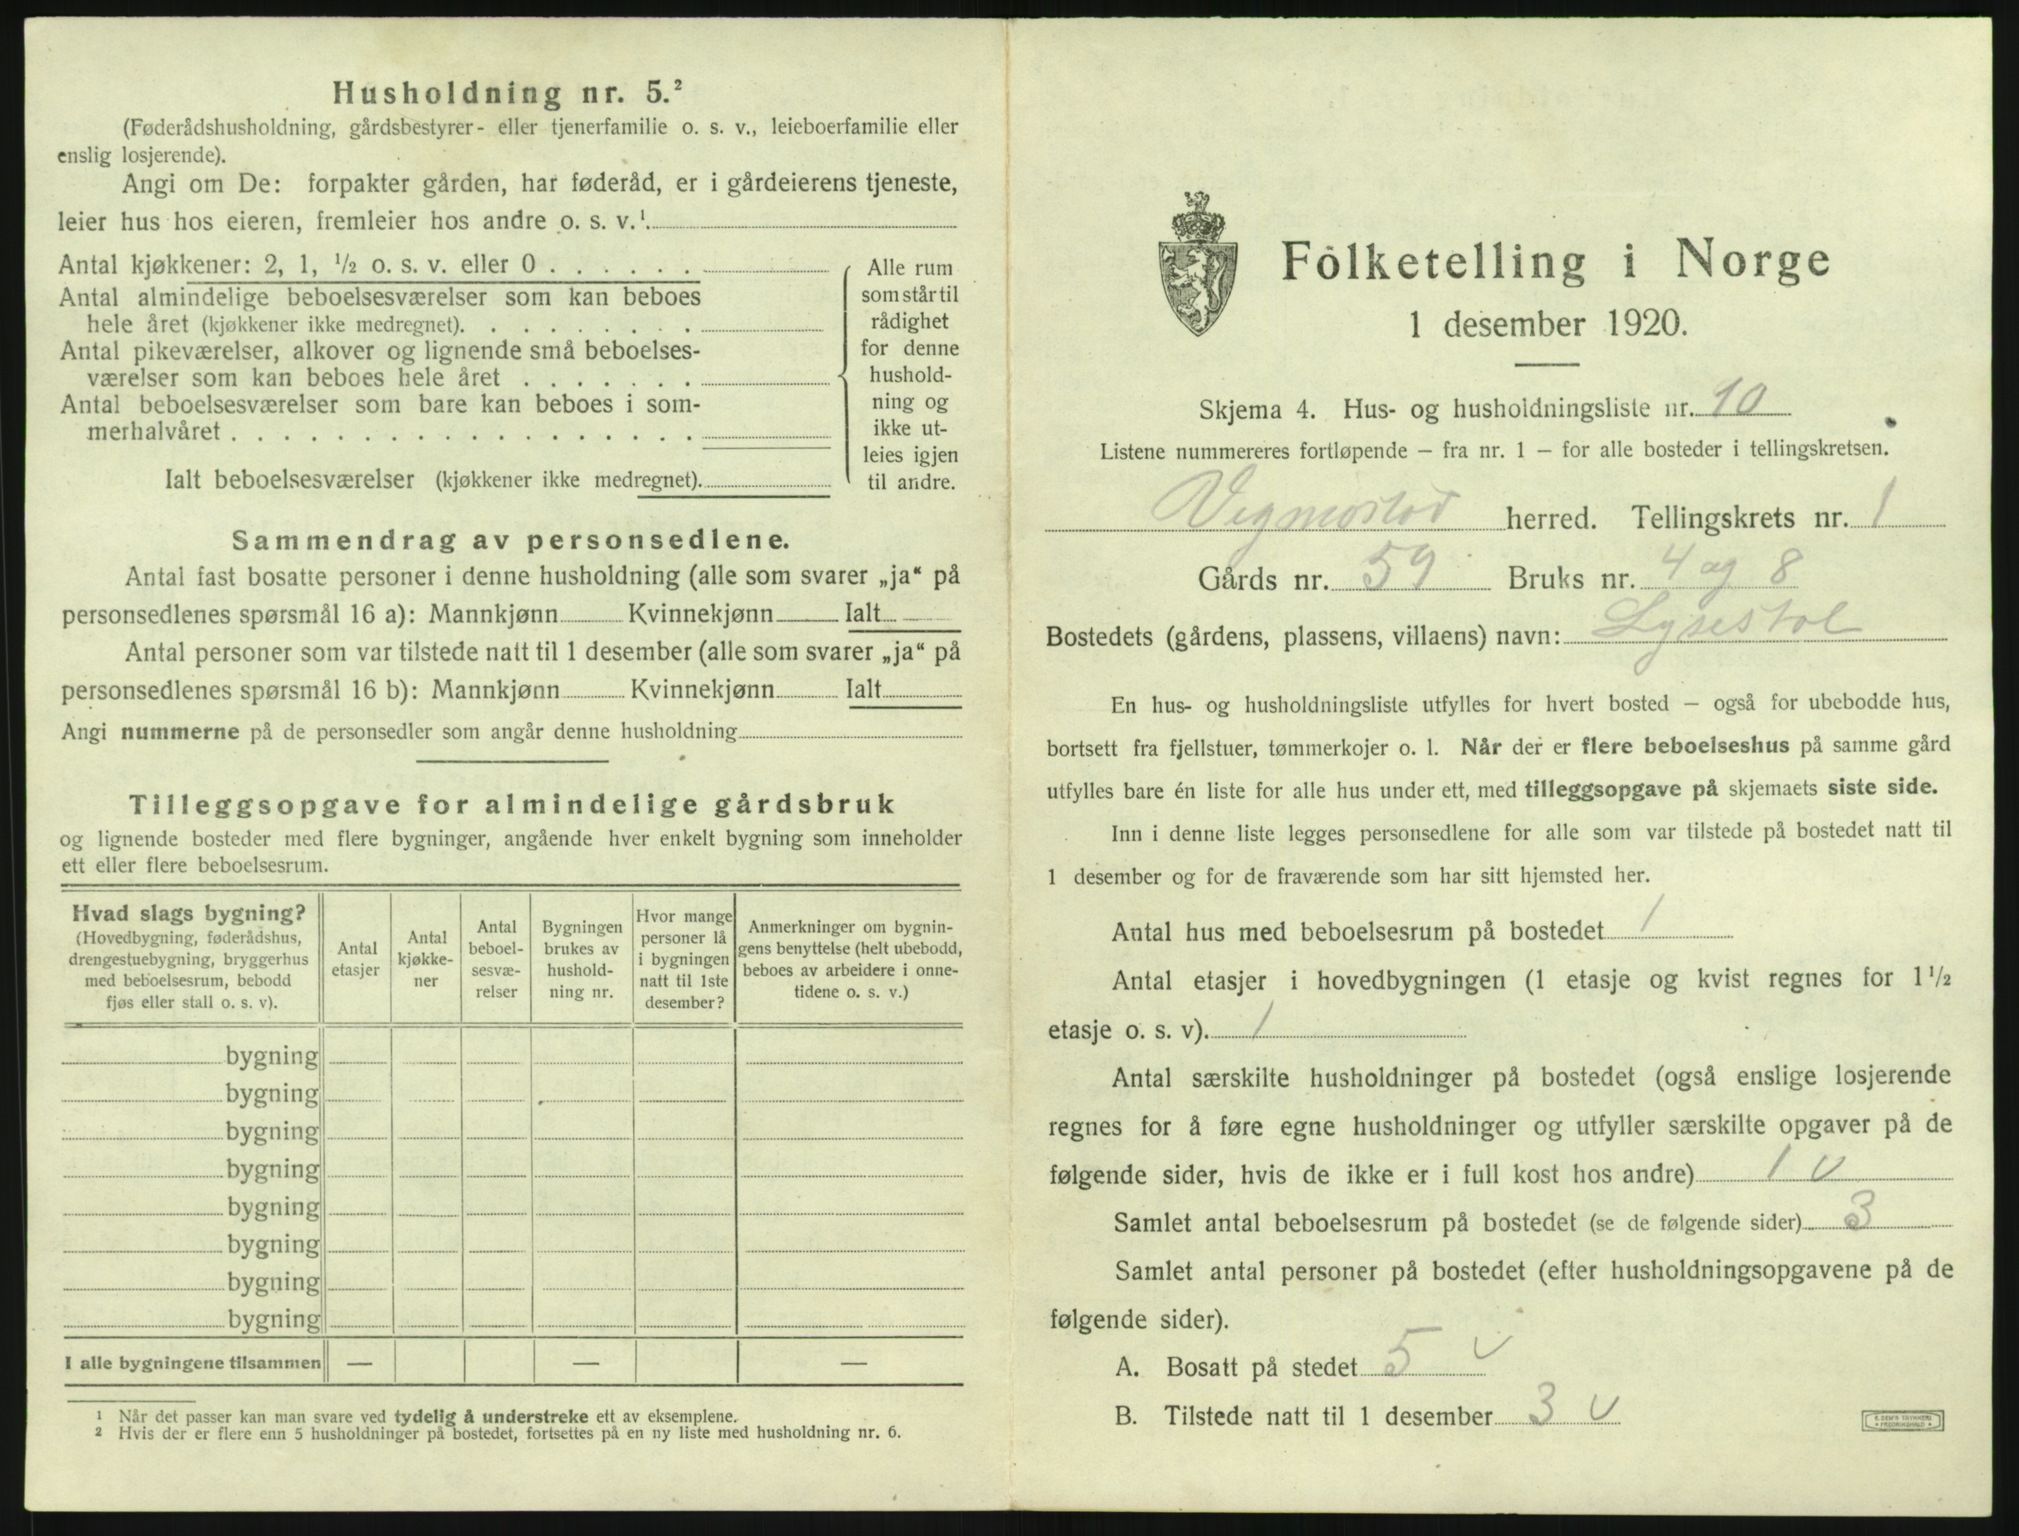 Husholdning nr. 5.²
(Føderådshusholdning, gårdsbestyrer- eller tjenerfamilie o. s. v., leieboerfamilie eller
enslig losjerende).
Angi om De: forpakter gården, har føderåd, er i gårdeierens tjeneste,
leier hus hos eieren, fremleier hos andre o. s. v.¹
Antal kjøkkener: 2, 1, ½ o. s. v. eller 0
Antal almindelige beboelsesværelser som kan beboes
hele året (kjøkkener ikke medregnet).
Antal pikeværelser, alkover og lignende små beboelses-
værelser som kan beboes hele året
Antal beboelsesværelser som bare kan beboes i som-
merhalvåret
Ialt beboelsesværelser (kjøkkener ikke medregnet).
Alle rum
som står til
rådighet
for denne
hushold-
ning og
ikke ut-
leies igjen
til andre.
Sammendrag av personsedlene.
Antal fast bosatte personer i denne husholdning (alle som svarer „ja“ på
personsedlenes spørsmål 16 a): Mannkjønn Kvinnekjønn Ialt
Antal personer som var tilstede natt til 1 desember (alle som svarer „ja“ på
personsedlenes spørsmål 16 b): Mannkjønn Kvinnekjønn Ialt
Angi nummerne på de personsedler som angår denne husholdning
Tilleggsopgave for almindelige gårdsbruk
og lignende bosteder med flere bygninger, angående hver enkelt bygning som inneholder
ett eller flere beboelsesrum.
Hvad slags bygning?
(Hovedbygning, føderådshus,
drengestuebygning, bryggerhus
med beboelsesrum, bebodd
fjøs eller stall o. s. v).
Antal
etasjer
Antal
kjøkke-
ner
Antal
beboel-
sesvæ-
relser
Bygningen
brukes av
hushold-
ning nr.
Hvor mange
personer lå
i bygningen
natt til 1ste
desember?
Anmerkninger om bygnin-
gens benyttelse (helt ubebodd,
beboes av arbeidere i onne-
tidene o. s. v.)
bygning
bygning
bygning
bygning
bygning
bygning
bygning
bygning
I alle bygningene tilsammen — — —
¹ Når det passer kan man svare ved tydelig å understreke ett av eksemplene.
² Hvis der er flere enn 5 husholdninger på bostedet, fortsettes på en ny liste med husholdning nr. 6.
Folketelling i Norge
1 desember 1920.
Skjema 4. Hus- og husholdningsliste nr. 10
Listene nummereres fortløpende – fra nr. 1 – for alle bosteder i tellingskretsen.
Vigmostad herred. Tellingskrets nr. 1
Gårds nr. 59 Bruks nr. 4 og 8
Bostedets (gårdens, plassens, villaens) navn: Lysestol
En hus- og husholdningsliste utfylles for hvert bosted – også for ubebodde hus,
bortsett fra fjellstuer, tømmerkojer o. l. Når der er flere beboelseshus på samme gård
utfylles bare én liste for alle hus under ett, med tilleggsopgave på skjemaets siste side.
Inn i denne liste legges personsedlene for alle som var tilstede på bostedet natt til
1 desember og for de fraværende som har sitt hjemsted her.
Antal hus med beboelsesrum på bostedet 1
Antal etasjer i hovedbygningen (1 etasje og kvist regnes for 1½
etasje o. s. v). 1
Antal særskilte husholdninger på bostedet (også enslige losjerende
regnes for å føre egne husholdninger og utfyller særskilte opgaver på de
følgende sider, hvis de ikke er i full kost hos andre) 1 v
Samlet antal beboelsesrum på bostedet (se de følgende sider) 3
Samlet antal personer på bostedet (efter husholdningsopgavene på de
følgende sider).
A. Bosatt på stedet 5 v
B. Tilstede natt til 1 desember 3 v